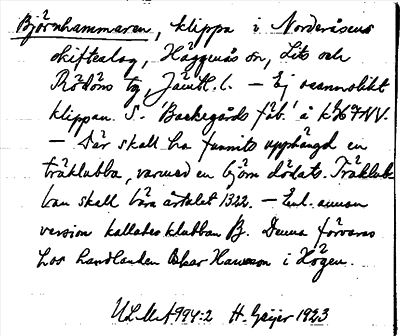 Björnhammaren, klippa i Norderåsens
skifteslag, Häggenås sn, Lits och
Rödöns tg, Jämtl. l. — Ej osannolikt
klippan S. 'Backegårds fäb.' å
— Där skall ha funnits upphängd en
träklubba, varmed en björn dödats. Träklub-
ban skall bära årtalet 1322. — Enl. annan
version kallades klubban B. Denna förvaras
hos handlanden Oskar Hansson i Högen.
ULMA 994:2 H. Geijer 1923